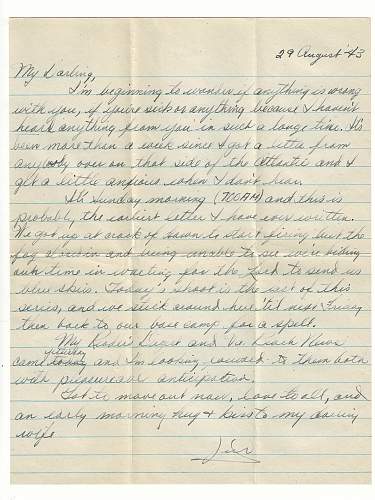 29 August '43
My Darling,
I'm beginning to wonder if anything is wrong
with you, if you're sick or anything because I haven't
heard anything from you in such a long time. It's
been more than a week since I got a letter from
anybody over on that side of the Atlantic and I
get a little anxious when I don't hear.
It's Sunday morning (7:00AM) and this is
probably the earliest letter I have ever written.
We got up at crack of dawn to start firing but the
fog is in and being unable to see we're biding
our time in waiting for the Lord to send us
blue skies. Today's shoot is the last of this
series, and we stick around here 'til next Friday
then back to our base camp for a spell.
My Reader's Digest and Va. Beach News
came yesterday and I'm looking forward to them both
with pleasurable anticipation.
Got to move out now, love to all, and
an early morning hug & kiss to my darling
wife